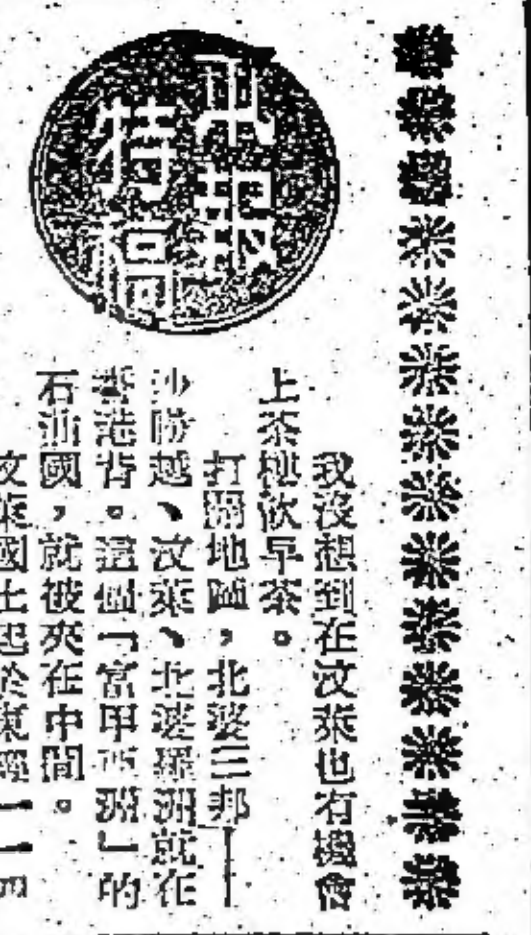 本報
特稿
我沒想到在汶萊也有機會
上茶樓飲早茶。
打開地圖，北婆三邦——
沙勝越、汶萊、北婆羅洲就在
香港背。這個「富甲亞洲」的
石油國，就被夾在中間。
汶萊國土起於東經一一四